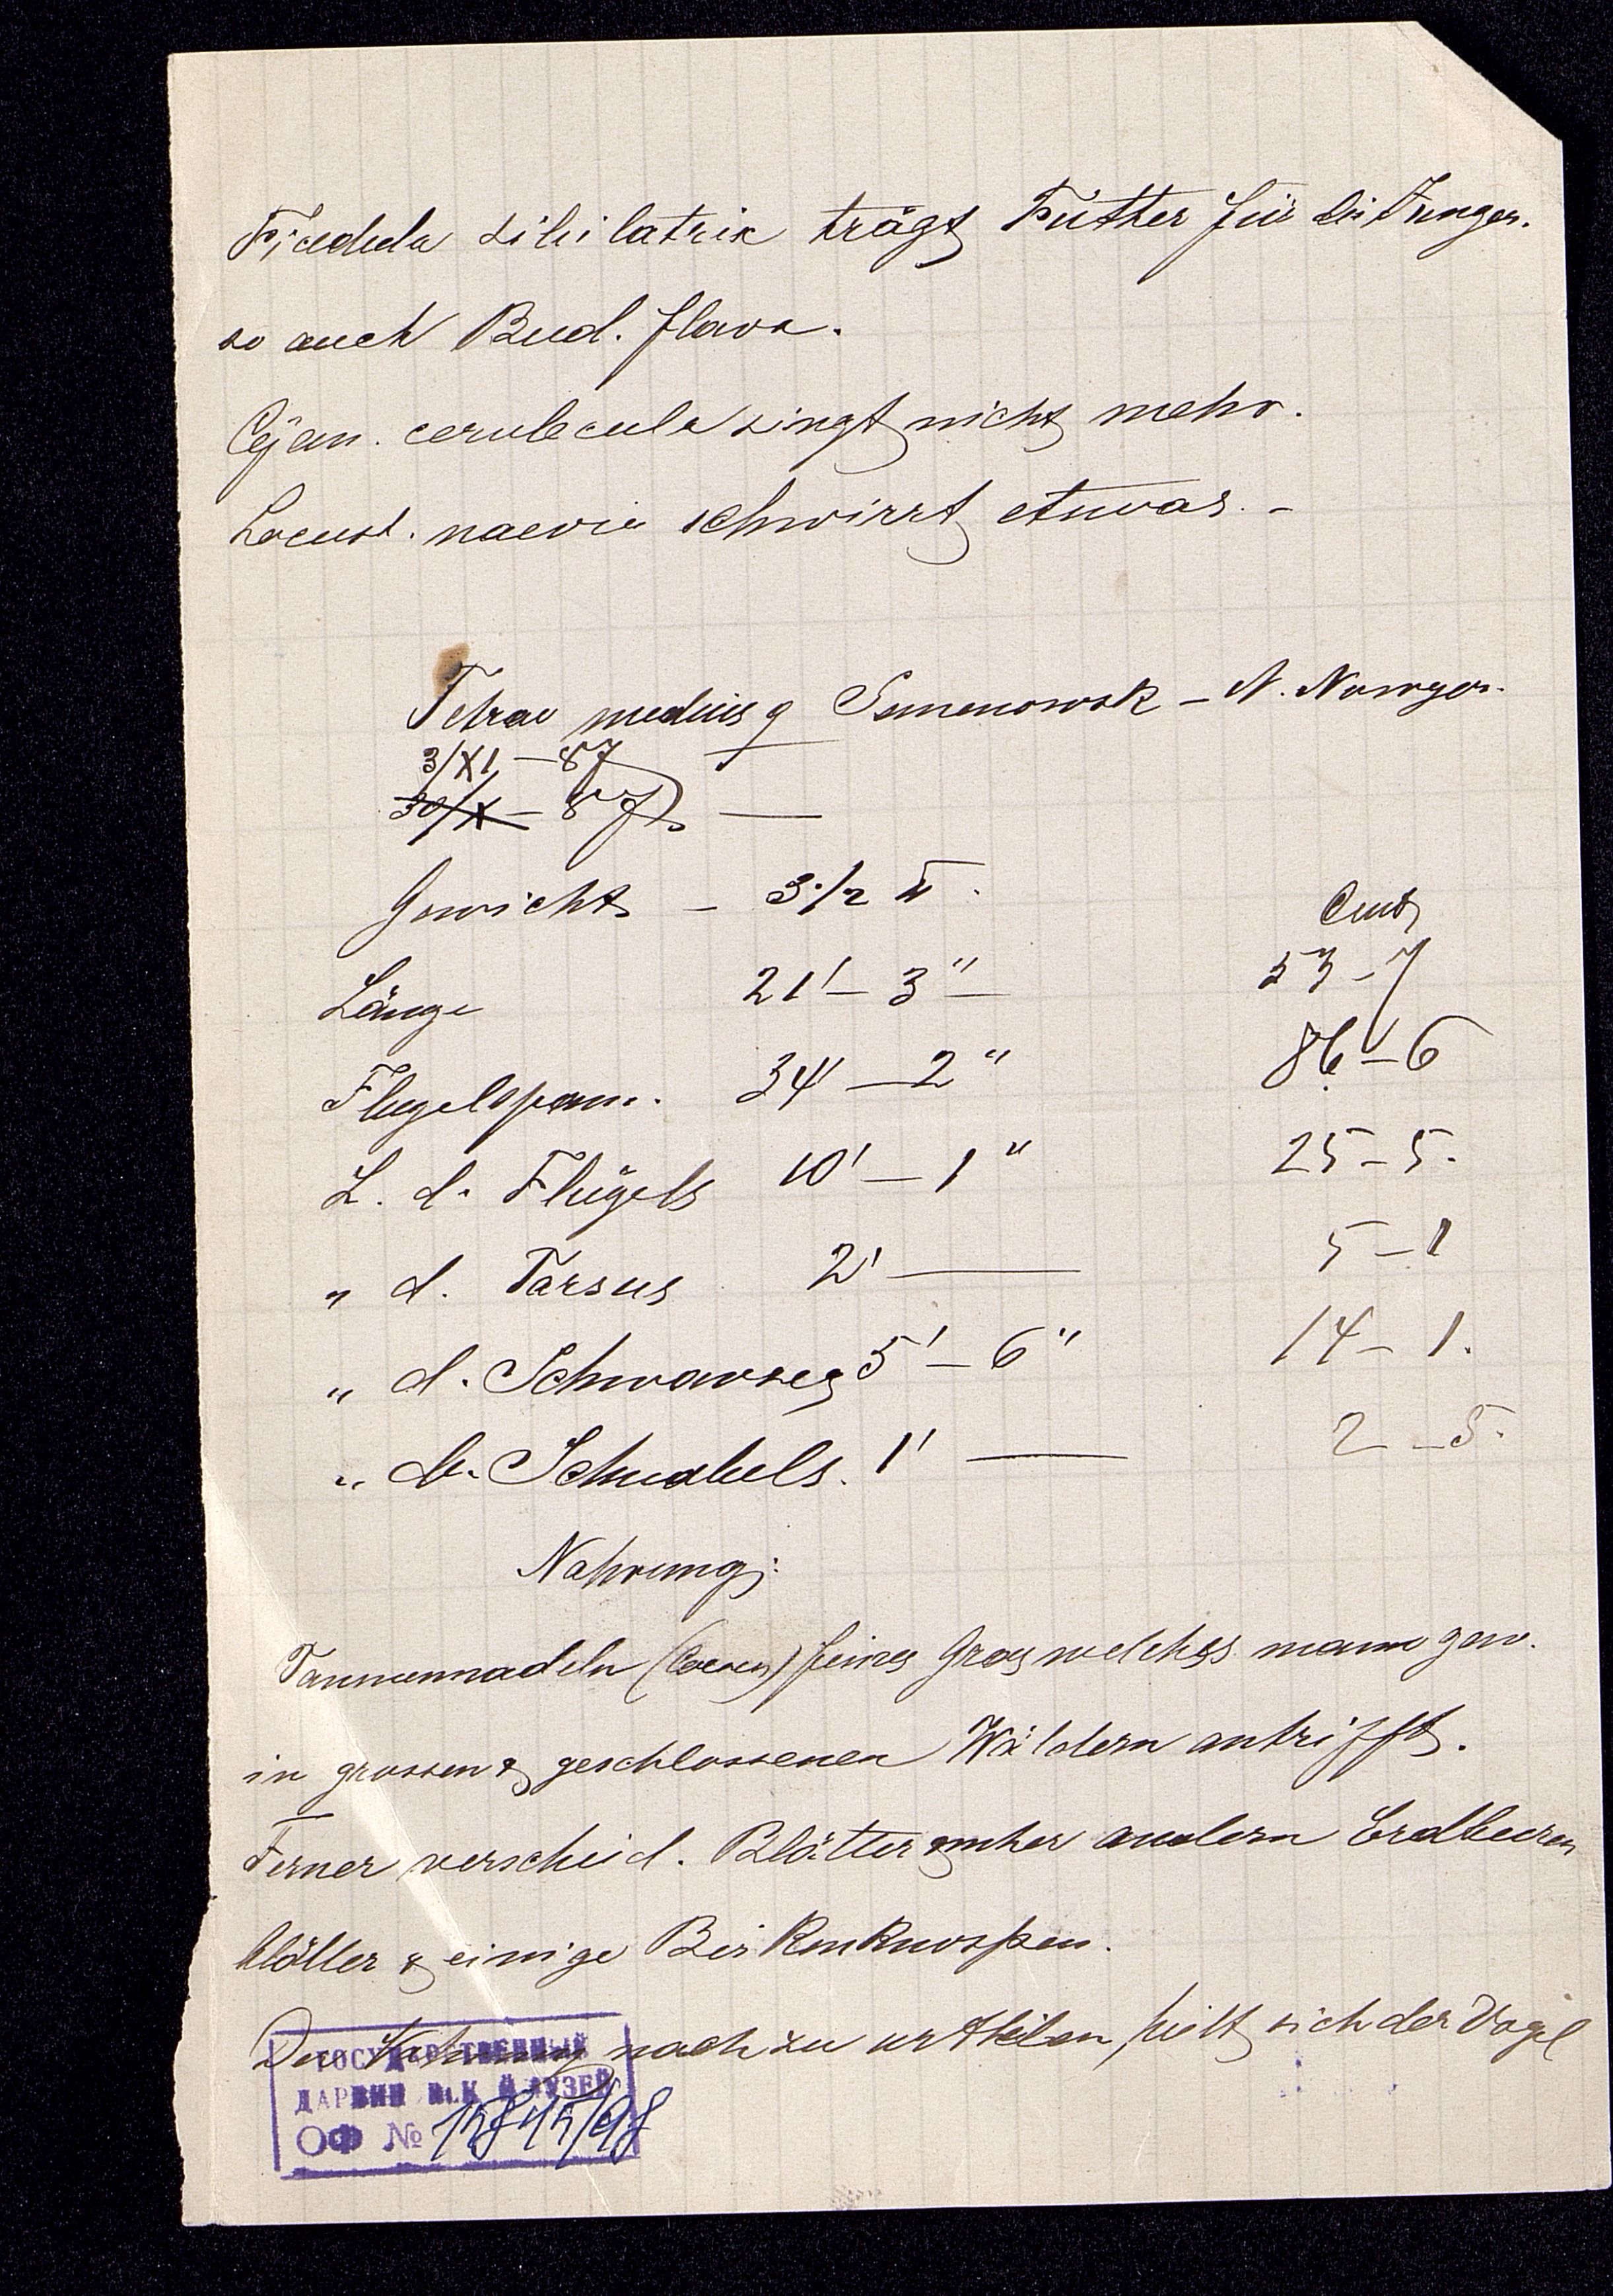 Ficedula sibilatrix trägt Futter für die Jungen.
so auch Bud. flava.
Cyan. cerulecula singt nicht mehr.
Locust. naevia schwirrt etwas. –
Tetrao medius ♀ Semenowsk – N. Nowgor.
3/XI – 87
30/X – 87
Gewicht – 3 1/2 ℔.
Cent
Länge 21' – 3" – 53 – 7
Flugelspann. 34' – 2" 86 – 6
L. d. Flügels 10' – 1" 25 – 5.
" d. Tarsus 2' — 5 – 1
" d. Schwanzes 5' – 6" 14 – 1.
" d. Schnabels. 1' — 2 – 5.
Nahrung:
Tannennadeln feines Gras welches mann gew.
in grossen & geschlossenen Wäldern antrifft.
Ferner verscheid. Blätter unter andern Erdbeeren
blätter & einige Birkenknospen.
Der Nahrung nach zu urtheilen, hielt sich der Vogel
ГОСУДАРСТВЕННЫЙ
ДАРВИНОВСКИЙ МУЗЕЙ
ОФ № 15845/98